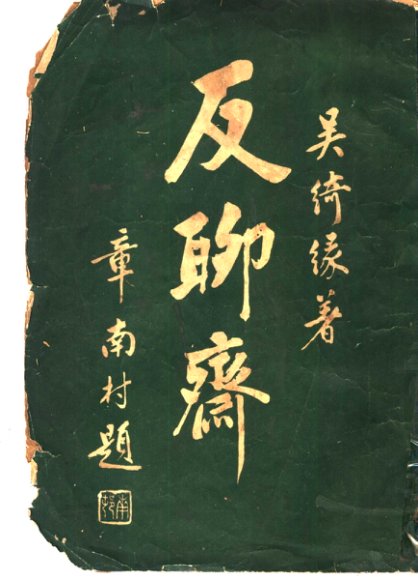 吴绮缘著
反聊齋
章南村題
南邨